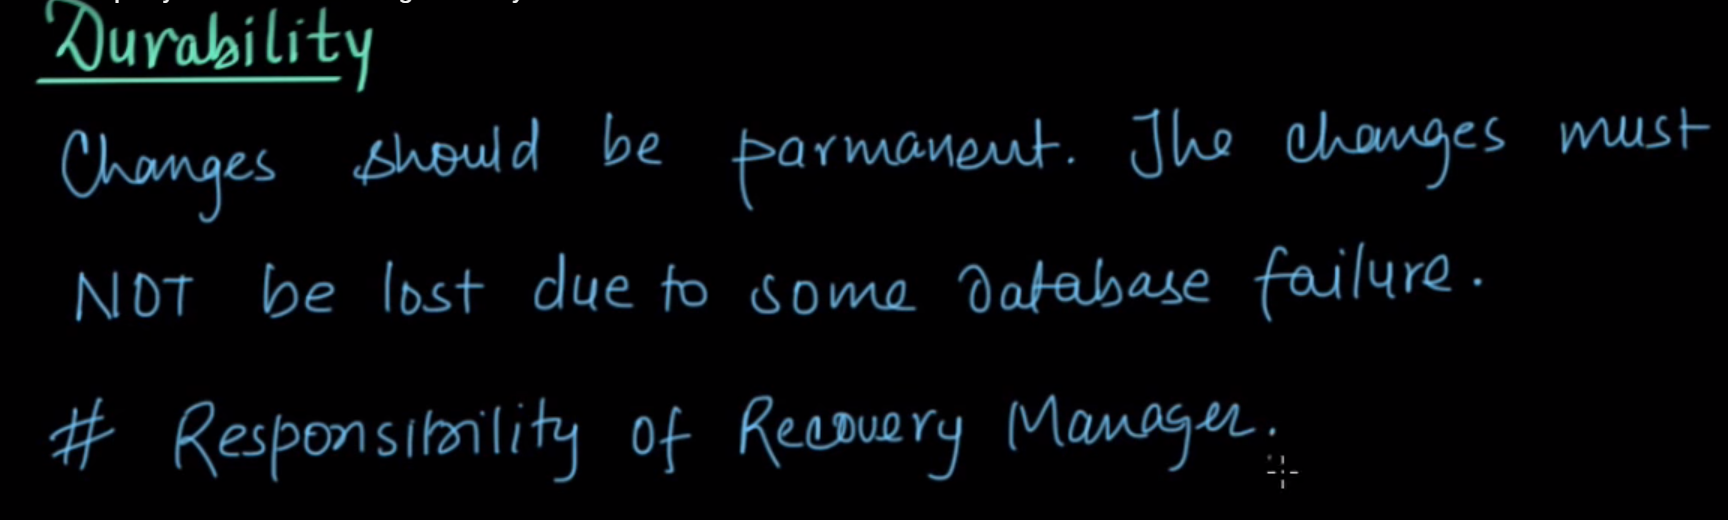 Durability
Changes should be parmanent. The changes must
NOT be lost due to some Database failure.
# Responsibility of Recovery Manager.